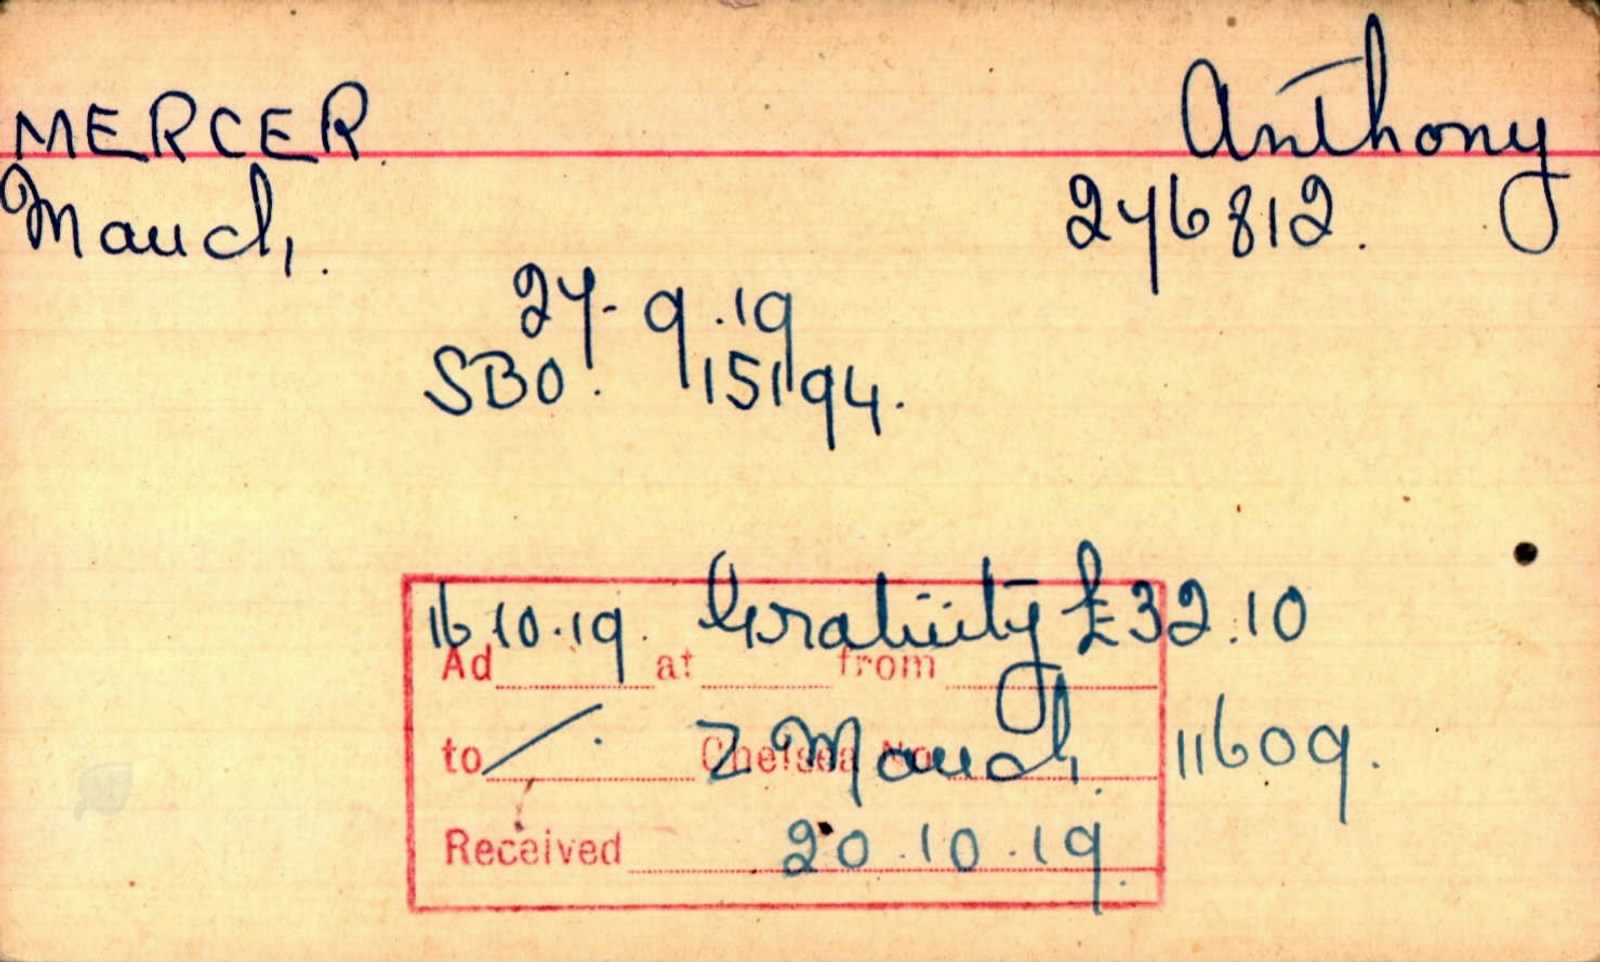 MERCER Anthony
Manch, 276812.
27.9.19
SBO. 1/15194.
16.10.19. Gratuity £32.10
Ad at from
to /. Z Manch, 11609.
Chelsea No
Received 20.10.19.